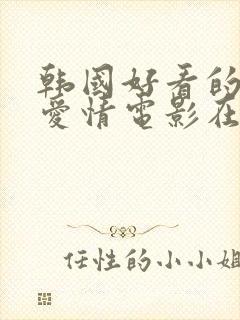 韩國好看的
愛情電影在
任性的小小姐